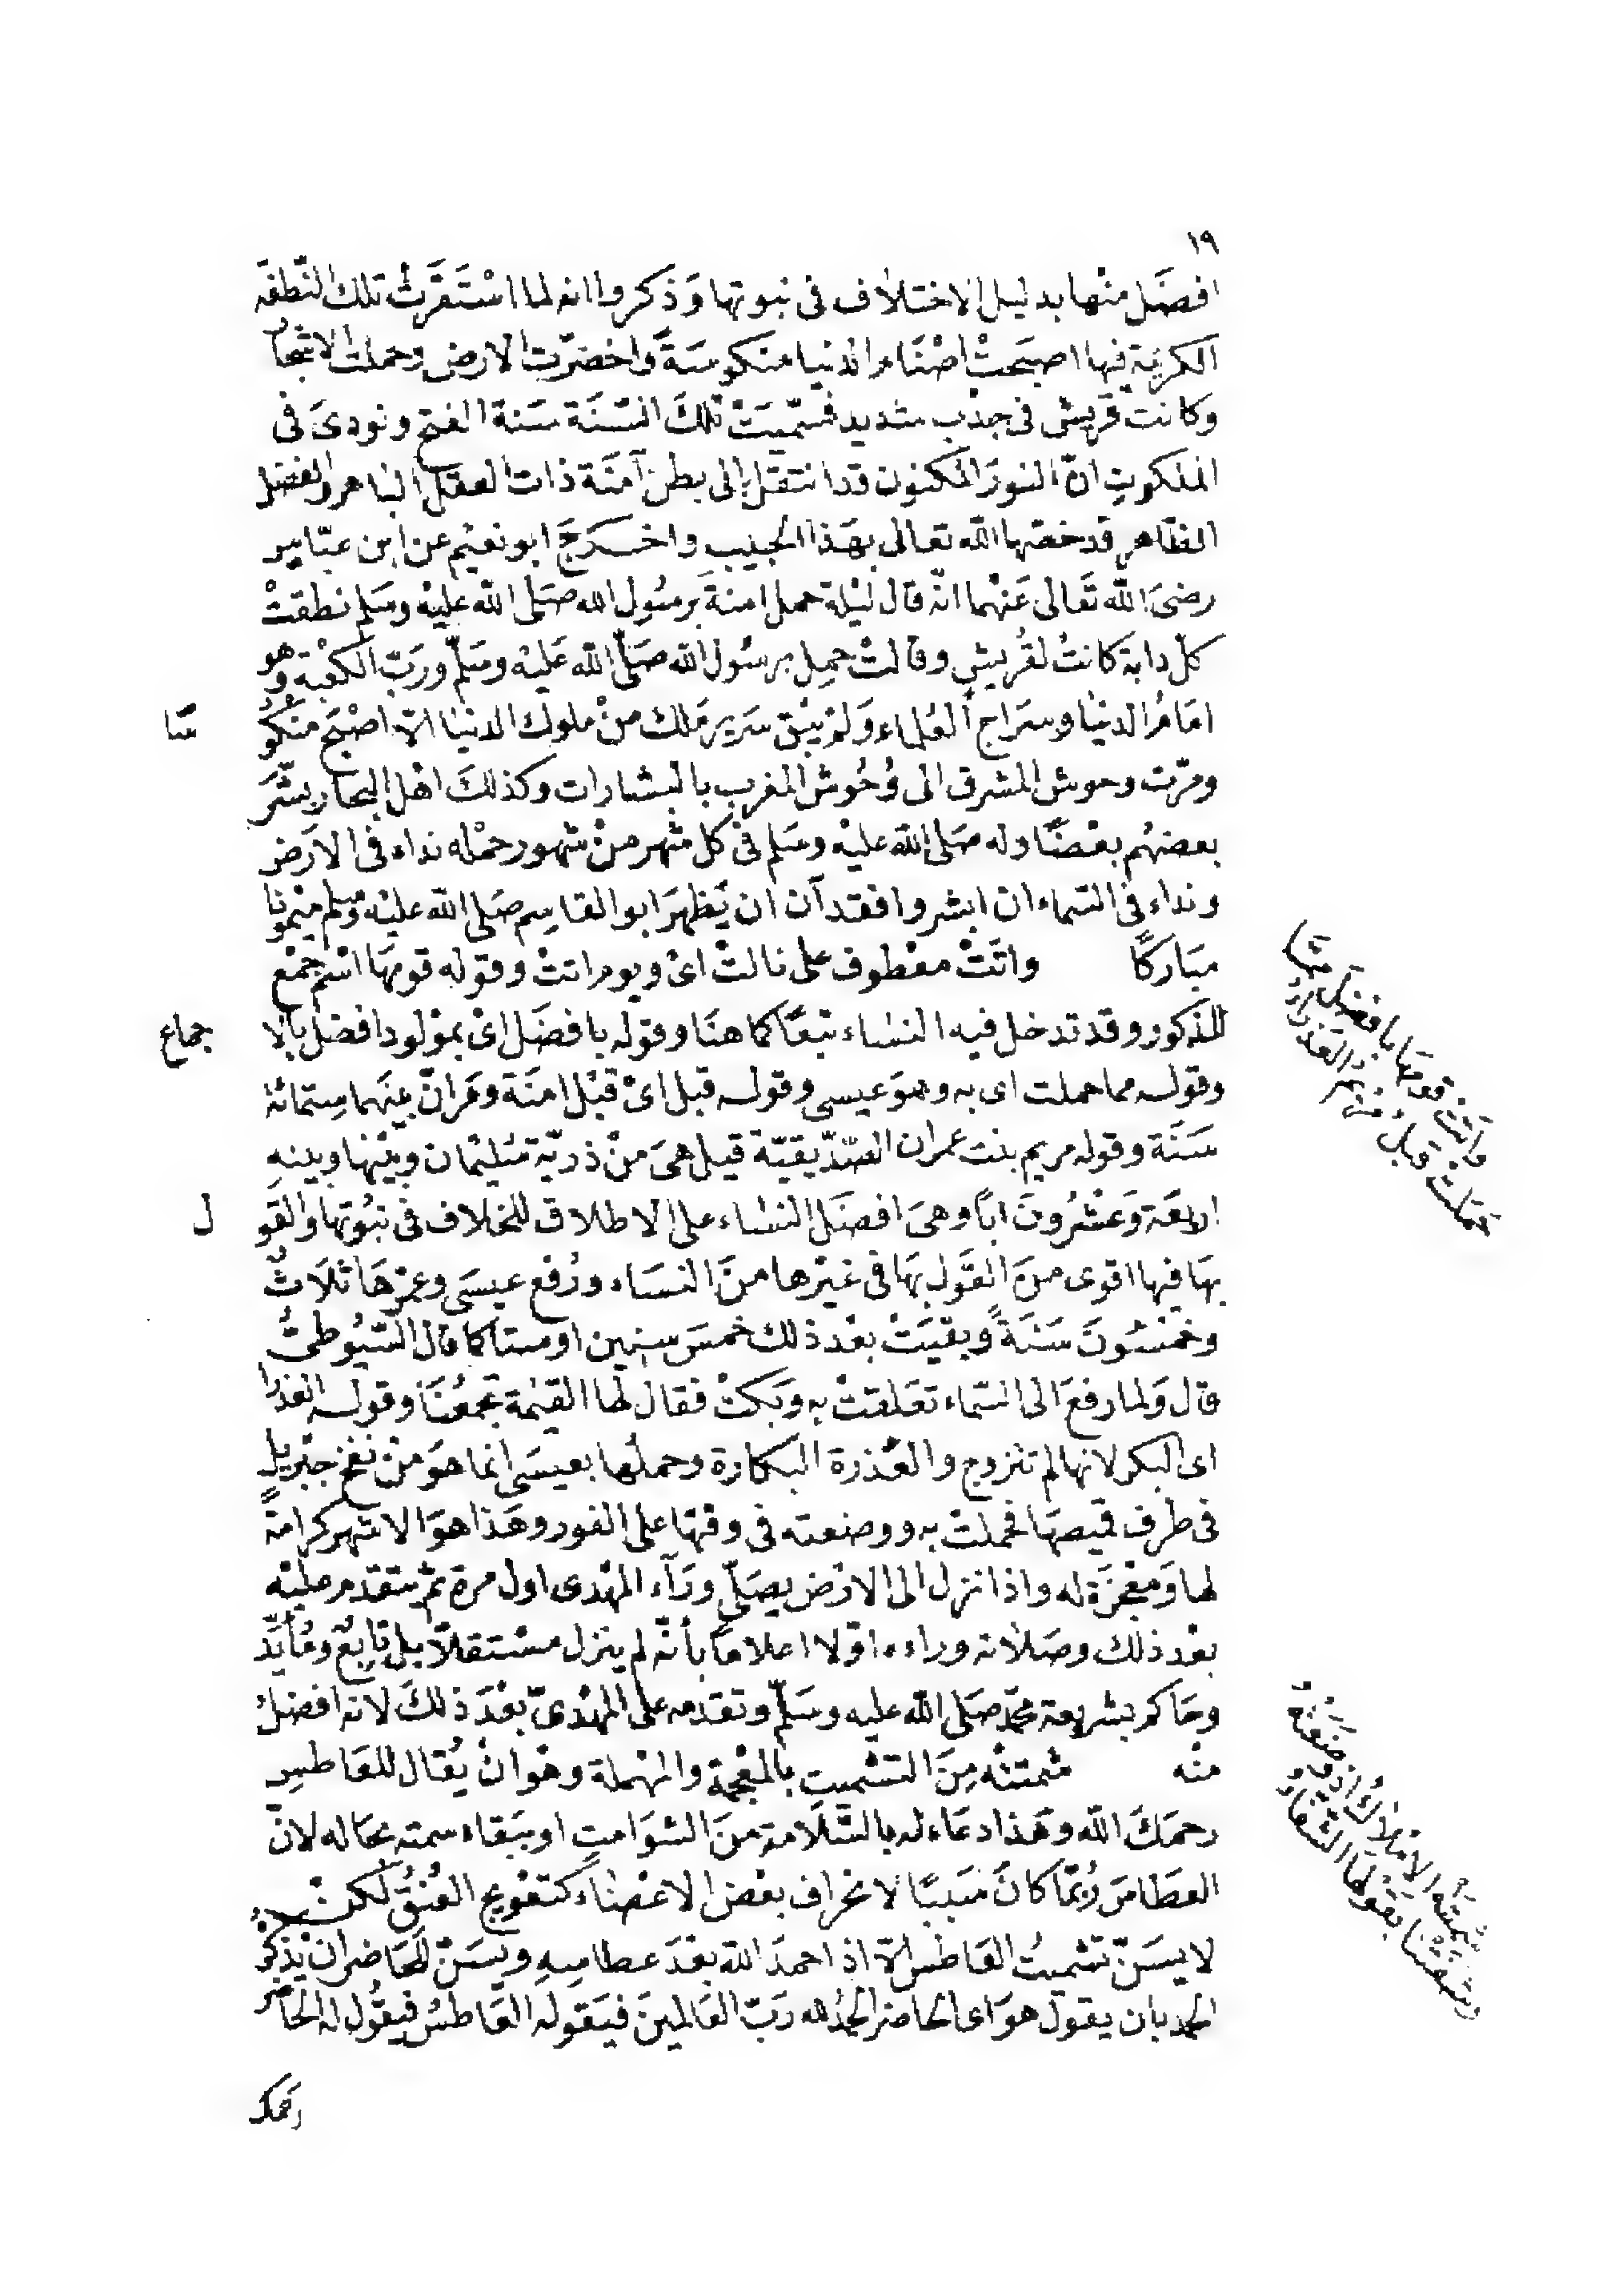 ١٩
افضَل منْها بدليل الاختلاف فى نبوتها وَذكروا انه لما اسْتَقَرَّتْ تلك النّطفَه
الكريمَة فيها اصبحَتْ اصْنَام الدنيا منكوسَةً واخضرّت الارض وحملت الاشجار
وكانت قريش فى جدْب شديد فسُمّيَتْ تلكَ السّنَة سَنة الفتح ونودىَ فى
الملكوتِ انّ النورَ المكنون قد انتقل الى بطن آمنَة ذات العقل الباهر والفضل
الظاهر قد خصّها الله تعالى بهَذا الحبيب واخرَجَ ابو نعيْم عن ابن عبّاس
رضىَ الله تَعَالى عَنْهما انّه قال ليْلة حمل امنةَ برسُولِ الله صَلى الله عليْه وسَلم نطقتْ
كلّ دابة كانتْ لقُريشٍ وقالتْ حمِل برسُول الله صَلّى الله عَليْه وسَلّم ورَبّ الكعْبة وهو
امَامُ الدنيَا وسرَاج اهلها ولمْ يبْق سَرير مَلك منْ ملوك الدنيَا الاّ اصْبَح منْكو سًا
ومرّت وحوش المشرق الى وُحُوش المغرب بالبشارات وكذلكَ اهْل البحار يبشّرَ
بعضهُم بعْضًا وله صَلى الله عليْه وسَلم فى كل شهر منْ شهور حمْله نداء فى الارَض
ونداء فى السّماء ان ابشروا فقد آن ان يَظهرَ ابو القاسِم صَلى الله عليْه وسلم ميْمونا
مبَاركًا واتَتْ معْطوف على نالتْ اىْ ويوم اتتْ وقوله قومهَا اسْم جمْع
للذكور وقد تدخل فيه النسَاء تبعًا كما هنَا وقوله بافضَل اىْ بمولود افضل بالا جماع
وقوله مما حملت اى به وهوَ عيسى وقوله قبل اىْ قبْل امنَةَ ومَرانّ بيْنَهما ستمائة
سَنَة وقوله مريم بنت عمران الصّدّيقيّة قيل هىَ منْ ذريّة سُليْمَان وبيْنها وبينهِ
اربعَة وَعشْرُونَ ابًا وهىَ افضَل النساء على الاطلاق للخلاف فى نبُوّتها وَالقَو ل
بهَا فيها اقوى منَ القَول بهَا فى غيْرها منَ النسَاء ورُفع عيسَى وعمْرهَا ثلاَثٌ
وخمْسُونَ سَنَةً وبقيَتْ بعْد ذلك خمسَ سنين او ستا كما قال السّيُوطىُّ
قال وَلما رفعَ الى السّماء تعَلقتْ به وَبكتْ فقال لها القيٰمة تجمعُنَا وقوله العذرا
اى البكر لانها لم تتزوج والعُذرة البكارة وحملُها بعيسَى انما هوَ منْ نفخ جبْريل
فى طرف قميصهَا فحملتْ به ووضعته فى وقتهَا على الفور وهَذا هوَ الاشهر كرامة
لها ومعْجزَة له واذا نزل الى الارْض يصَلّى ورَآء المهْدى اول مرة ثمّ يتقدم عليْه
بعْد ذلك وصَلاته وراءه اوّلا اعلامًا بأنّه لم ينزل مسْتقلاّ بل تابِعٌ ومُأيّد
وحَاكم بشريعة محمّد صَلى الله عليه وسَلّم وتقدمه على المهْدىّ بعْدَ ذلكَ لانه افضلُ
منْه شمتتْه مِنَ التشْميت بالمعْجمة والمهْملة وهوَ انْ يُقال للعَاطس
رحمَكَ الله وهَذا دعَاء له بالسَّلاَمة منَ الشوَامت او ببَقاء سمته بحَاله لانّ
العطَاسَ رُبمَّا كانَ مسَببًا لانحراف بعْض الاعْضَاء كتعْويج العُنُق لكنْ
لا يسَنّ تشميتُ العَاطس الاّ اذا حمدَ الله بعْدَ عطاسِهِ ويسَنّ للحَاضر انْ يذكرُ
الحمد بان يقول هوَ اى الحاضر الحمْد لله رَبّ العَالمينَ فيَقوله العَاطسُ فيقُول له الحَاضر
رحمك
وَاتَتْ قومَهَا بافضَل ممَّا
حَمَلتْ قبلُ مَرْيمُ العَذرَاءُ
شمَّتَتْهُ الاَمْلاكُ اذ وَضَعَتْهُ
وشفَتْنَا بقَوْلهَا الشّفَاءُ